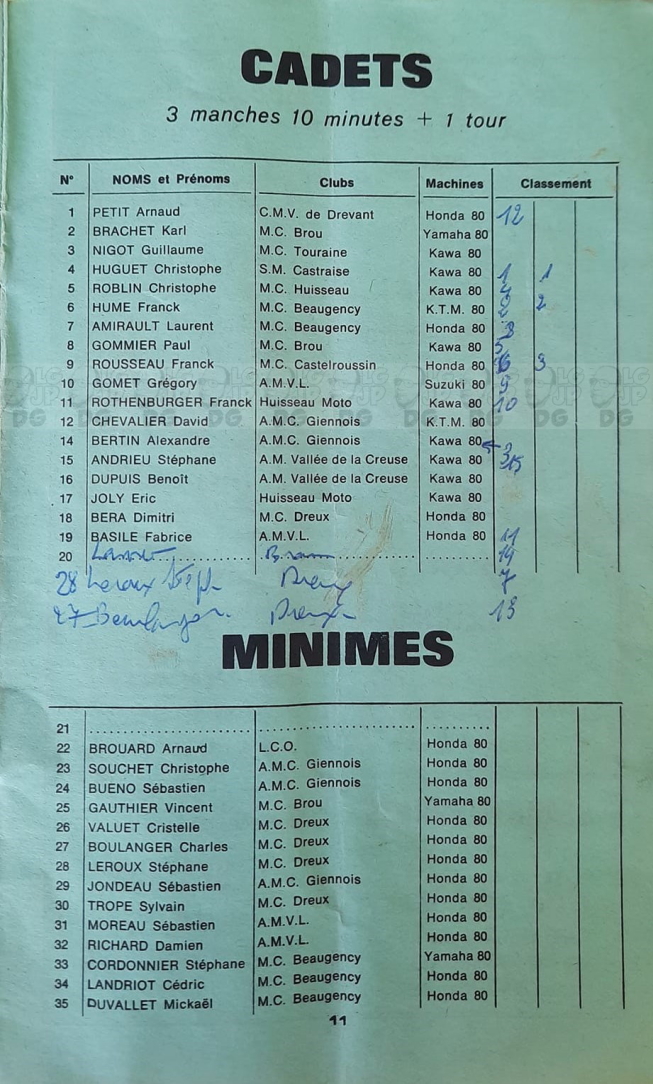 CADETS
3 manches 10 minutes + 1 tour
N° NOMS et Prénoms Clubs Machines Classement
1 PETIT Arnaud C.M.V. de Drevant Honda 80 12
2 BRACHET Karl M.C. Brou Yamaha 80
3 NIGOT Guillaume M.C. Touraine Kawa 80
4 HUGUET Christophe S.M. Castraise Kawa 80 1 1
5 ROBLIN Christophe M.C. Huisseau Kawa 80
6 HUME Franck M.C. Beaugency K.T.M. 80 2
7 AMIRAULT Laurent M.C. Beaugency Honda 80 8
8 GOMMIER Paul M.C. Brou Kawa 80 5
9 ROUSSEAU Franck M.C. Castelroussin Honda 80 6 3
10 GOMET Grégory A.M.V.L. Suzuki 80 9
11 ROTHENBURGER Franck Huisseau Moto Kawa 80 10
12 CHEVALIER David A.M.C. Giennois K.T.M. 80
14 BERTIN Alexandre A.M.C. Giennois Kawa 80
15 ANDRIEU Stéphane A.M. Vallée de la Creuse Kawa 80
16 DUPUIS Benoît A.M. Vallée de la Creuse Kawa 80
17 JOLY Eric Huisseau Moto Kawa 80
18 BERA Dimitri M.C. Dreux Honda 80
19 BASILE Fabrice A.M.V.L. Honda 80 11
20 14
28 Leroux Stéph Dreux 7
27 Boulanger Dreux 13
MINIMES
21
22 BROUARD Arnaud L.C.O. Honda 80
23 SOUCHET Christophe A.M.C. Giennois Honda 80
24 BUENO Sébastien A.M.C. Giennois Honda 80
25 GAUTHIER Vincent M.C. Brou Yamaha 80
26 VALUET Cristelle M.C. Dreux Honda 80
27 BOULANGER Charles M.C. Dreux Honda 80
28 LEROUX Stéphane M.C. Dreux Honda 80
29 JONDEAU Sébastien A.M.C. Giennois Honda 80
30 TROPE Sylvain M.C. Dreux Honda 80
31 MOREAU Sébastien A.M.V.L. Honda 80
32 RICHARD Damien A.M.V.L. Honda 80
33 CORDONNIER Stéphane M.C. Beaugency Yamaha 80
34 LANDRIOT Cédric M.C. Beaugency Honda 80
35 DUVALLET Mickaël M.C. Beaugency Honda 80
11